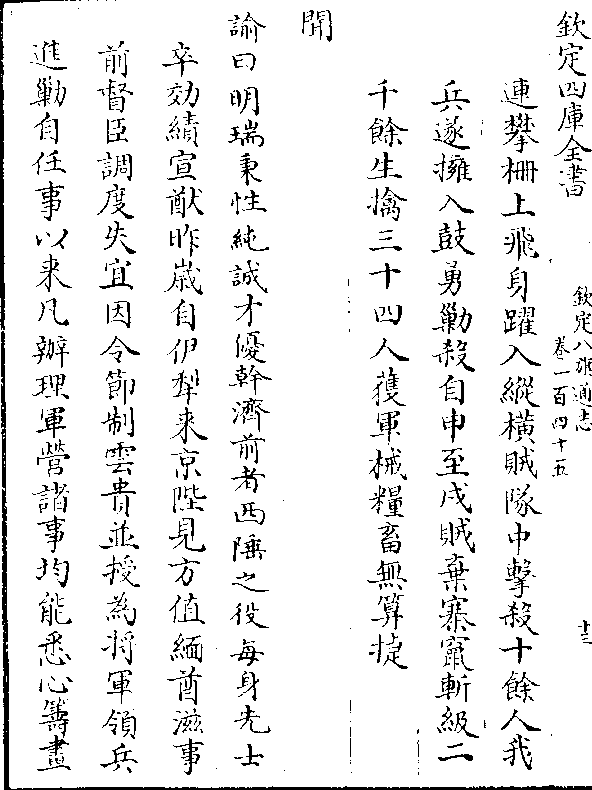 欽定四庫全書
欽定八旗通志
卷一百四十五
十三
連攀柵上飛身躍入縱橫賊隊中擊殺十餘人我
兵遂擁入鼓勇勦殺自申至戌賊棄寨竄斬級二
千餘生擒三十四人獲軍械糧畜無算捷
聞
諭曰明瑞秉性純誠才優幹濟前者西陲之役每身先士
卒効績宣猷昨歲自伊犁来京陛見方值緬酋滋事
前督臣調度失宜因令節制雲貴並授為将軍領兵
進勦自任事以来凡辦理軍營諸事均能悉心籌畫